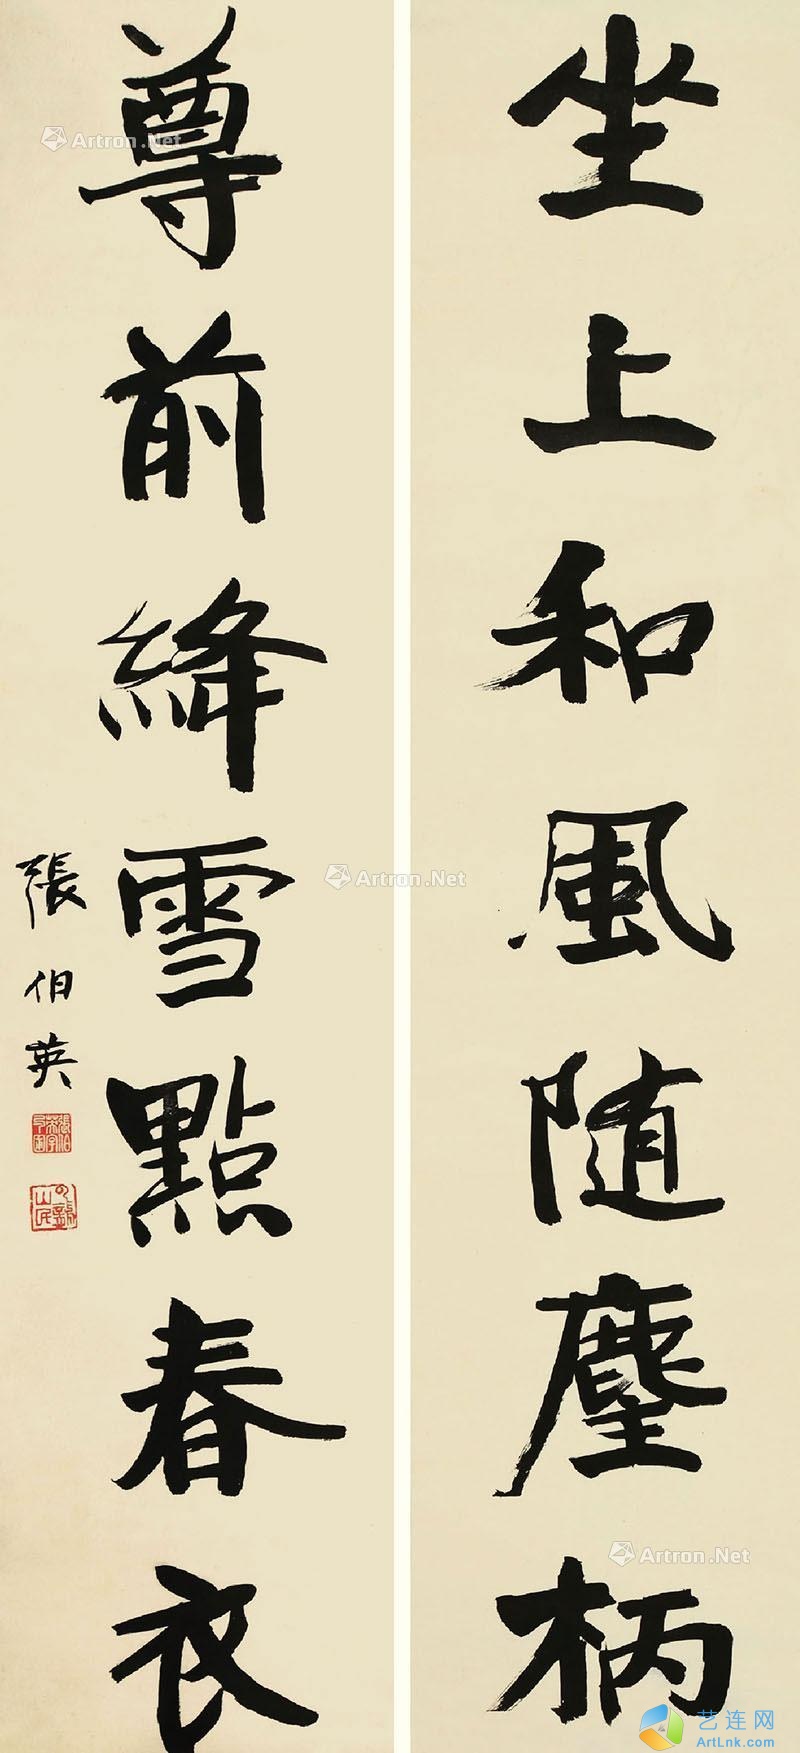 坐上和風随麈柄
尊前絳雪點春衣
張伯英
張伯英字勺圃
Artron.Net
Artron.Net
Artron.Net
艺连网
ArtLnk.com